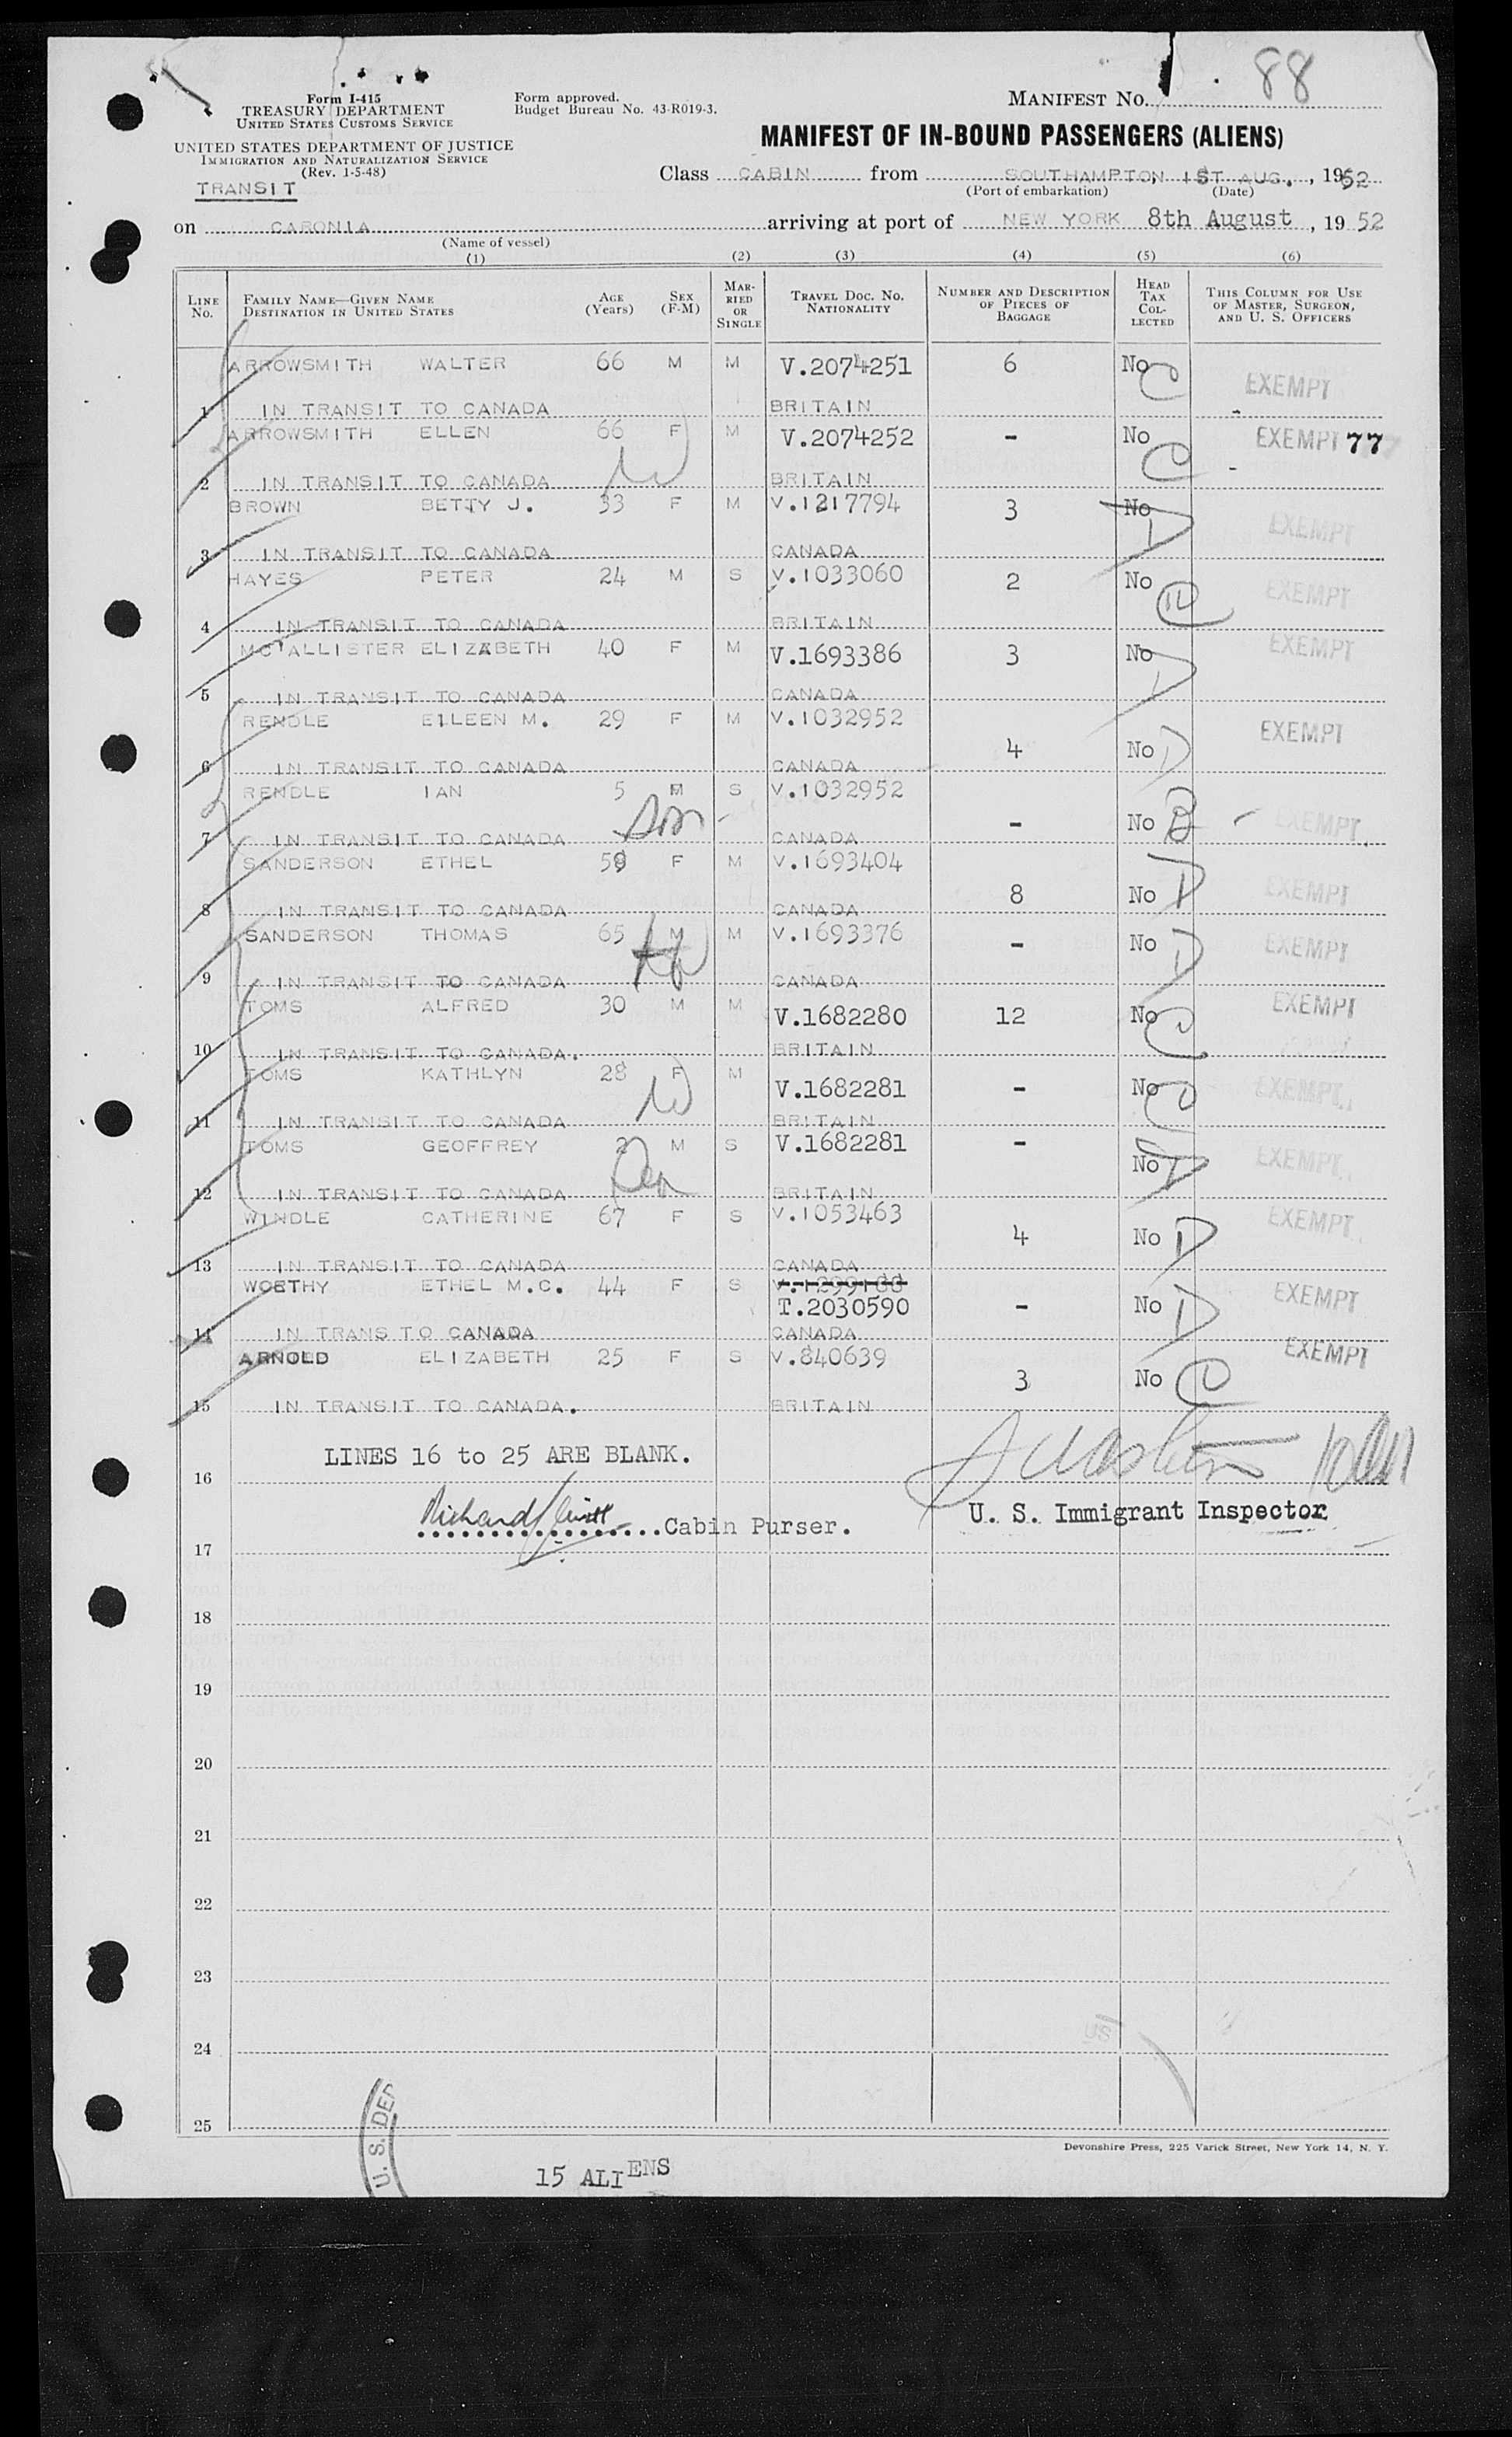 88
Form I-415
TREASURY DEPARTMENT
UNITED STATES CUSTOMS SERVICE
Form approved.
Budget Bureau No. 43-R019-3.
MANIFEST No.
UNITED STATES DEPARTMENT OF JUSTICE
IMMIGRATION AND NATURALIZATION SERVICE
(Rev. 1-5-48)
TRANSIT
MANIFEST OF IN-BOUND PASSENGERS (ALIENS)
Class CABIN from SOUTHAMPTON, 1ST AUG., 1952
(Port of embarkation) (Date)
on CARONIA arriving at port of NEW YORK 8th August, 19 52
(Name of vessel)
(1) (2) (3) (4) (5) (6)
LINE No. FAMILY NAME—GIVEN NAME DESTINATION IN UNITED STATES AGE (Years) SEX (F-M) MARRIED OR SINGLE TRAVEL DOC. No. NATIONALITY NUMBER AND DESCRIPTION OF PIECES OF BAGGAGE HEAD TAX COLLECTED THIS COLUMN FOR USE OF MASTER, SURGEON, AND U. S. OFFICERS
ARROWSMITH WALTER 66 M M V.2074251 6 No C EXEMPT
1 IN TRANSIT TO CANADA BRITAIN
ARROWSMITH ELLEN 66 F M V.2074252 - No C EXEMPT 77
2 IN TRANSIT TO CANADA W BRITAIN
BROWN BETTY J. 33 F M V.1217794 3 No D EXEMPT
3 IN TRANSIT TO CANADA CANADA
HAYES PETER 24 M S V.1033060 2 No EXEMPT
4 IN TRANSIT TO CANADA BRITAIN
MC'ALLISTER ELIZABETH 40 F M V.1693386 3 No D EXEMPT
5 IN TRANSIT TO CANADA CANADA
RENDLE EILEEN M. 29 F M V.1032952 4 No D EXEMPT
6 IN TRANSIT TO CANADA CANADA
RENDLE IAN 5 M S V.1032952 - No B - EXEMPT
7 IN TRANSIT TO CANADA Son CANADA
SANDERSON ETHEL 59 F M V.1693404 8 No D EXEMPT
8 IN TRANSIT TO CANADA CANADA
SANDERSON THOMAS 65 M M V.1693376 - No D EXEMPT
9 IN TRANSIT TO CANADA CANADA
TOMS ALFRED 30 M M V.1682280 12 No C EXEMPT
10 IN TRANSIT TO CANADA. BRITAIN
TOMS KATHLYN 28 F M V.1682281 - No C EXEMPT
11 IN TRANSIT TO CANADA W BRITAIN
TOMS GEOFFREY 2 M S V.1682281 - No EXEMPT
12 IN TRANSIT TO CANADA BRITAIN
WINDLE CATHERINE 67 F S V.1053463 4 No D EXEMPT
13 IN TRANSIT TO CANADA CANADA
WORTHY ETHEL M.C. 44 F S T.2030590 - No D EXEMPT
14 IN TRANS TO CANADA CANADA
ARNOLD ELIZABETH 25 F S V.840639 3 No C EXEMPT
15 IN TRANSIT TO CANADA. BRITAIN
LINES 16 to 25 ARE BLANK.
16
Richard Cabin Purser. U. S. Immigrant Inspector
17
18
19
20
21
22
23
24
US
25
Devonshire Press, 225 Varick Street, New York 14, N. Y.
U. S. DEP
15 ALIENS